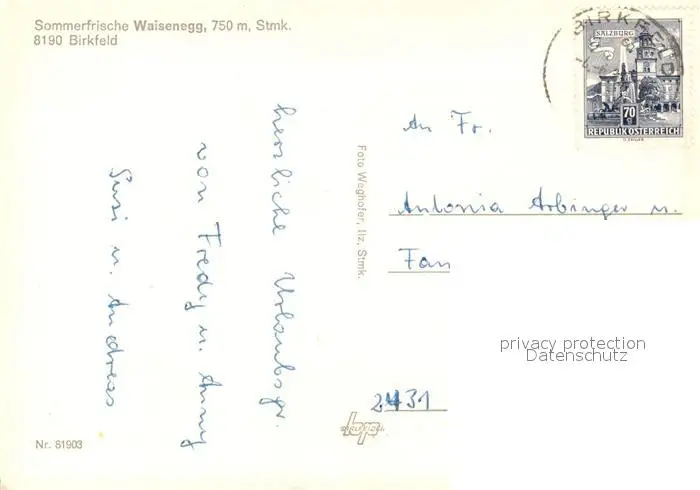 Sommerfrische Waisenegg, 750 m, Stmk.
8190 Birkfeld
herzliche Urlaubsgr.
von Fredy u. Anny
Susi u. Andreas
Foto Weghofer, Ilz, Stmk.
BIRKFELD
SALZBURG
70
REPUBLIK ÖSTERREICH
An Fr.
Antonia Arbinger u.
Fam
privacy protection
Datenschutz
2431
bp
Nr. 81903